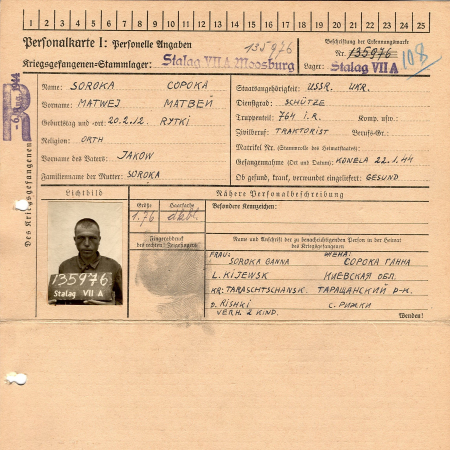 1 2 3 4 5 6 7 8 9 10 11 12 13 14 15 16 17 18 19 20 21 22 23 24 25
Personalkarte I: Personelle Angaben
135976
Beschriftung der Erkennungsmarke
Nr. 135976
108
Kriegsgefangenen-Stammlager: Stalag VII A Moosburg
Lager: Stalag VII A
Des Kriegsgefangenen
R
-6. Aug. 1944
Name: SOROKA СОРОКА
Vorname: MATWEJ МАТВЕЙ
Geburtstag und -ort: 20.2.12. RYTKI
Religion: ORTH
Vorname des Vaters: JAKOW
Familienname der Mutter: SOROKA
Staatsangehörigkeit: USSR. UKR.
Dienstgrad: SCHÜTZE
Truppenteil: 764 I.R. Komp. usw.:
Zivilberuf: TRAKTORIST Berufs-Gr.:
Matrikel Nr. (Stammrolle des Heimatstaates):
Gefangennahme (Ort und Datum): KONELA 22.1.44
Ob gesund, krank, verwundet eingeliefert: GESUND
Lichtbild
135976
Stalag VII A
Nähere Personalbeschreibung
Größe
Haarfarbe
1.76
Besondere Kennzeichen:
Fingerabdruck
des rechten Zeigefingers
Name und Anschrift der zu benachrichtigenden Person in der Heimat
des Kriegsgefangenen
FRAU: ЖЕНА:
SOROKA GANNA СОРОКА ГАННА
L. KIJEWSK КИЕВСКАЯ ОБЛ.
KR: TARASCHTSCHANSK. ТАРАЩАНСКИЙ Р-К.
D. RISHKI С. РИЖКИ
VERH. 2 KIND.
Wenden!